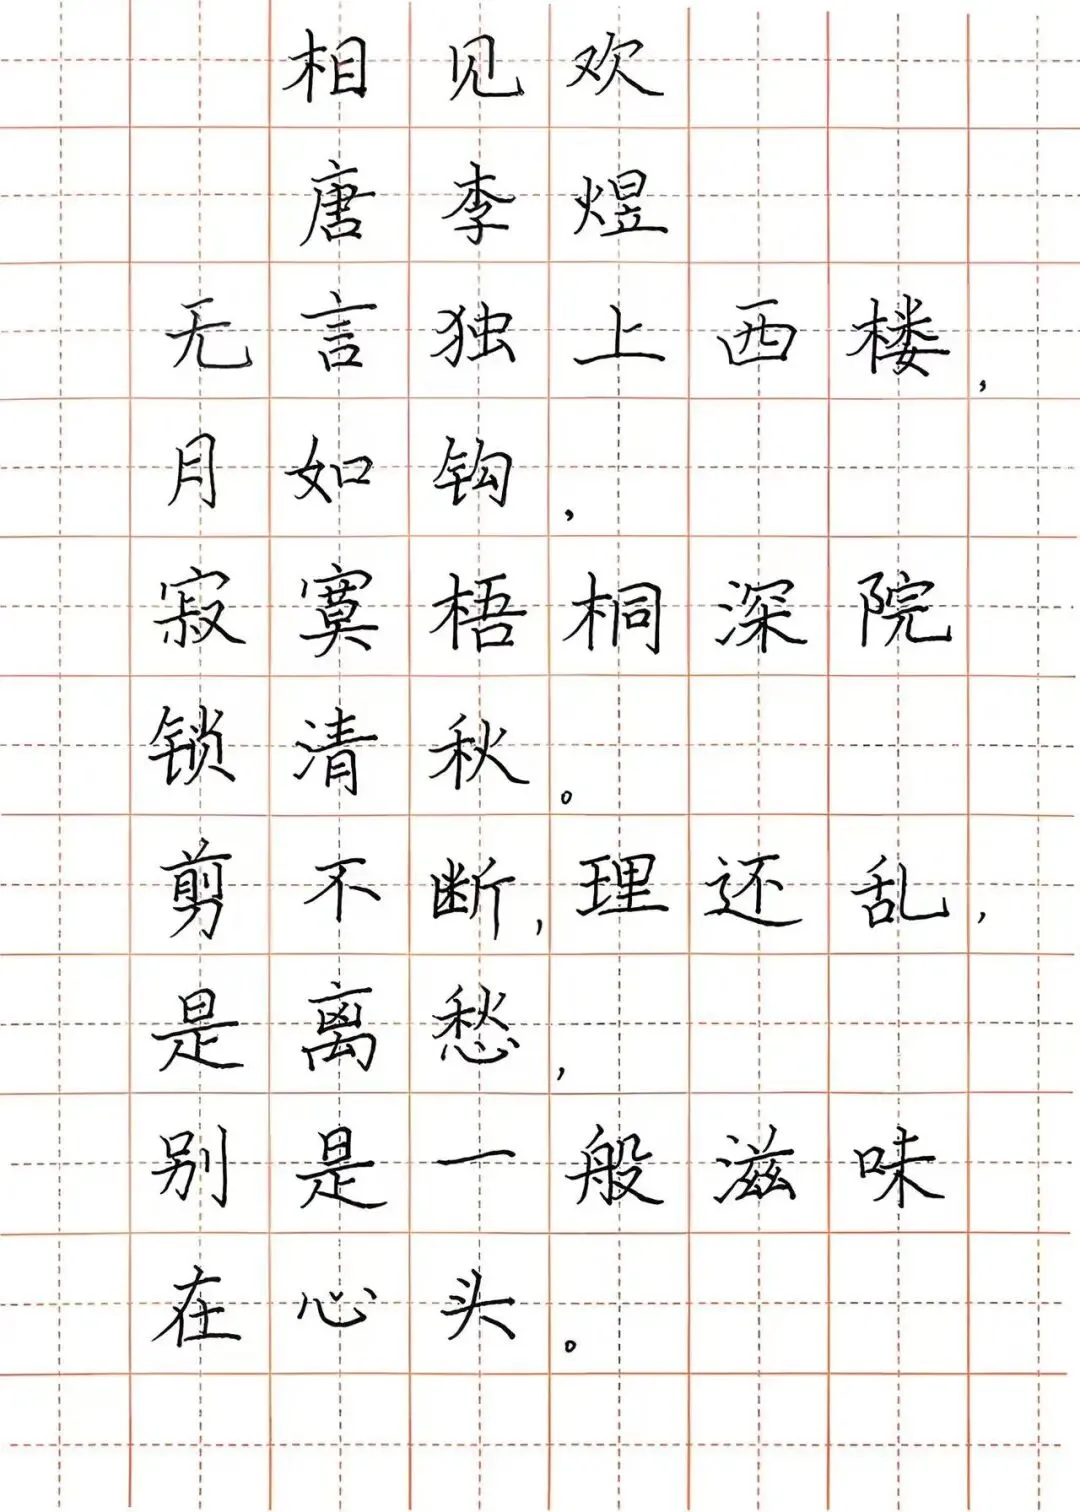 相见欢
唐李煜
无言独上西楼,
月如钩,
寂寞梧桐深院
锁清秋。
剪不断,理还乱,
是离愁,
别是一般滋味
在心头。